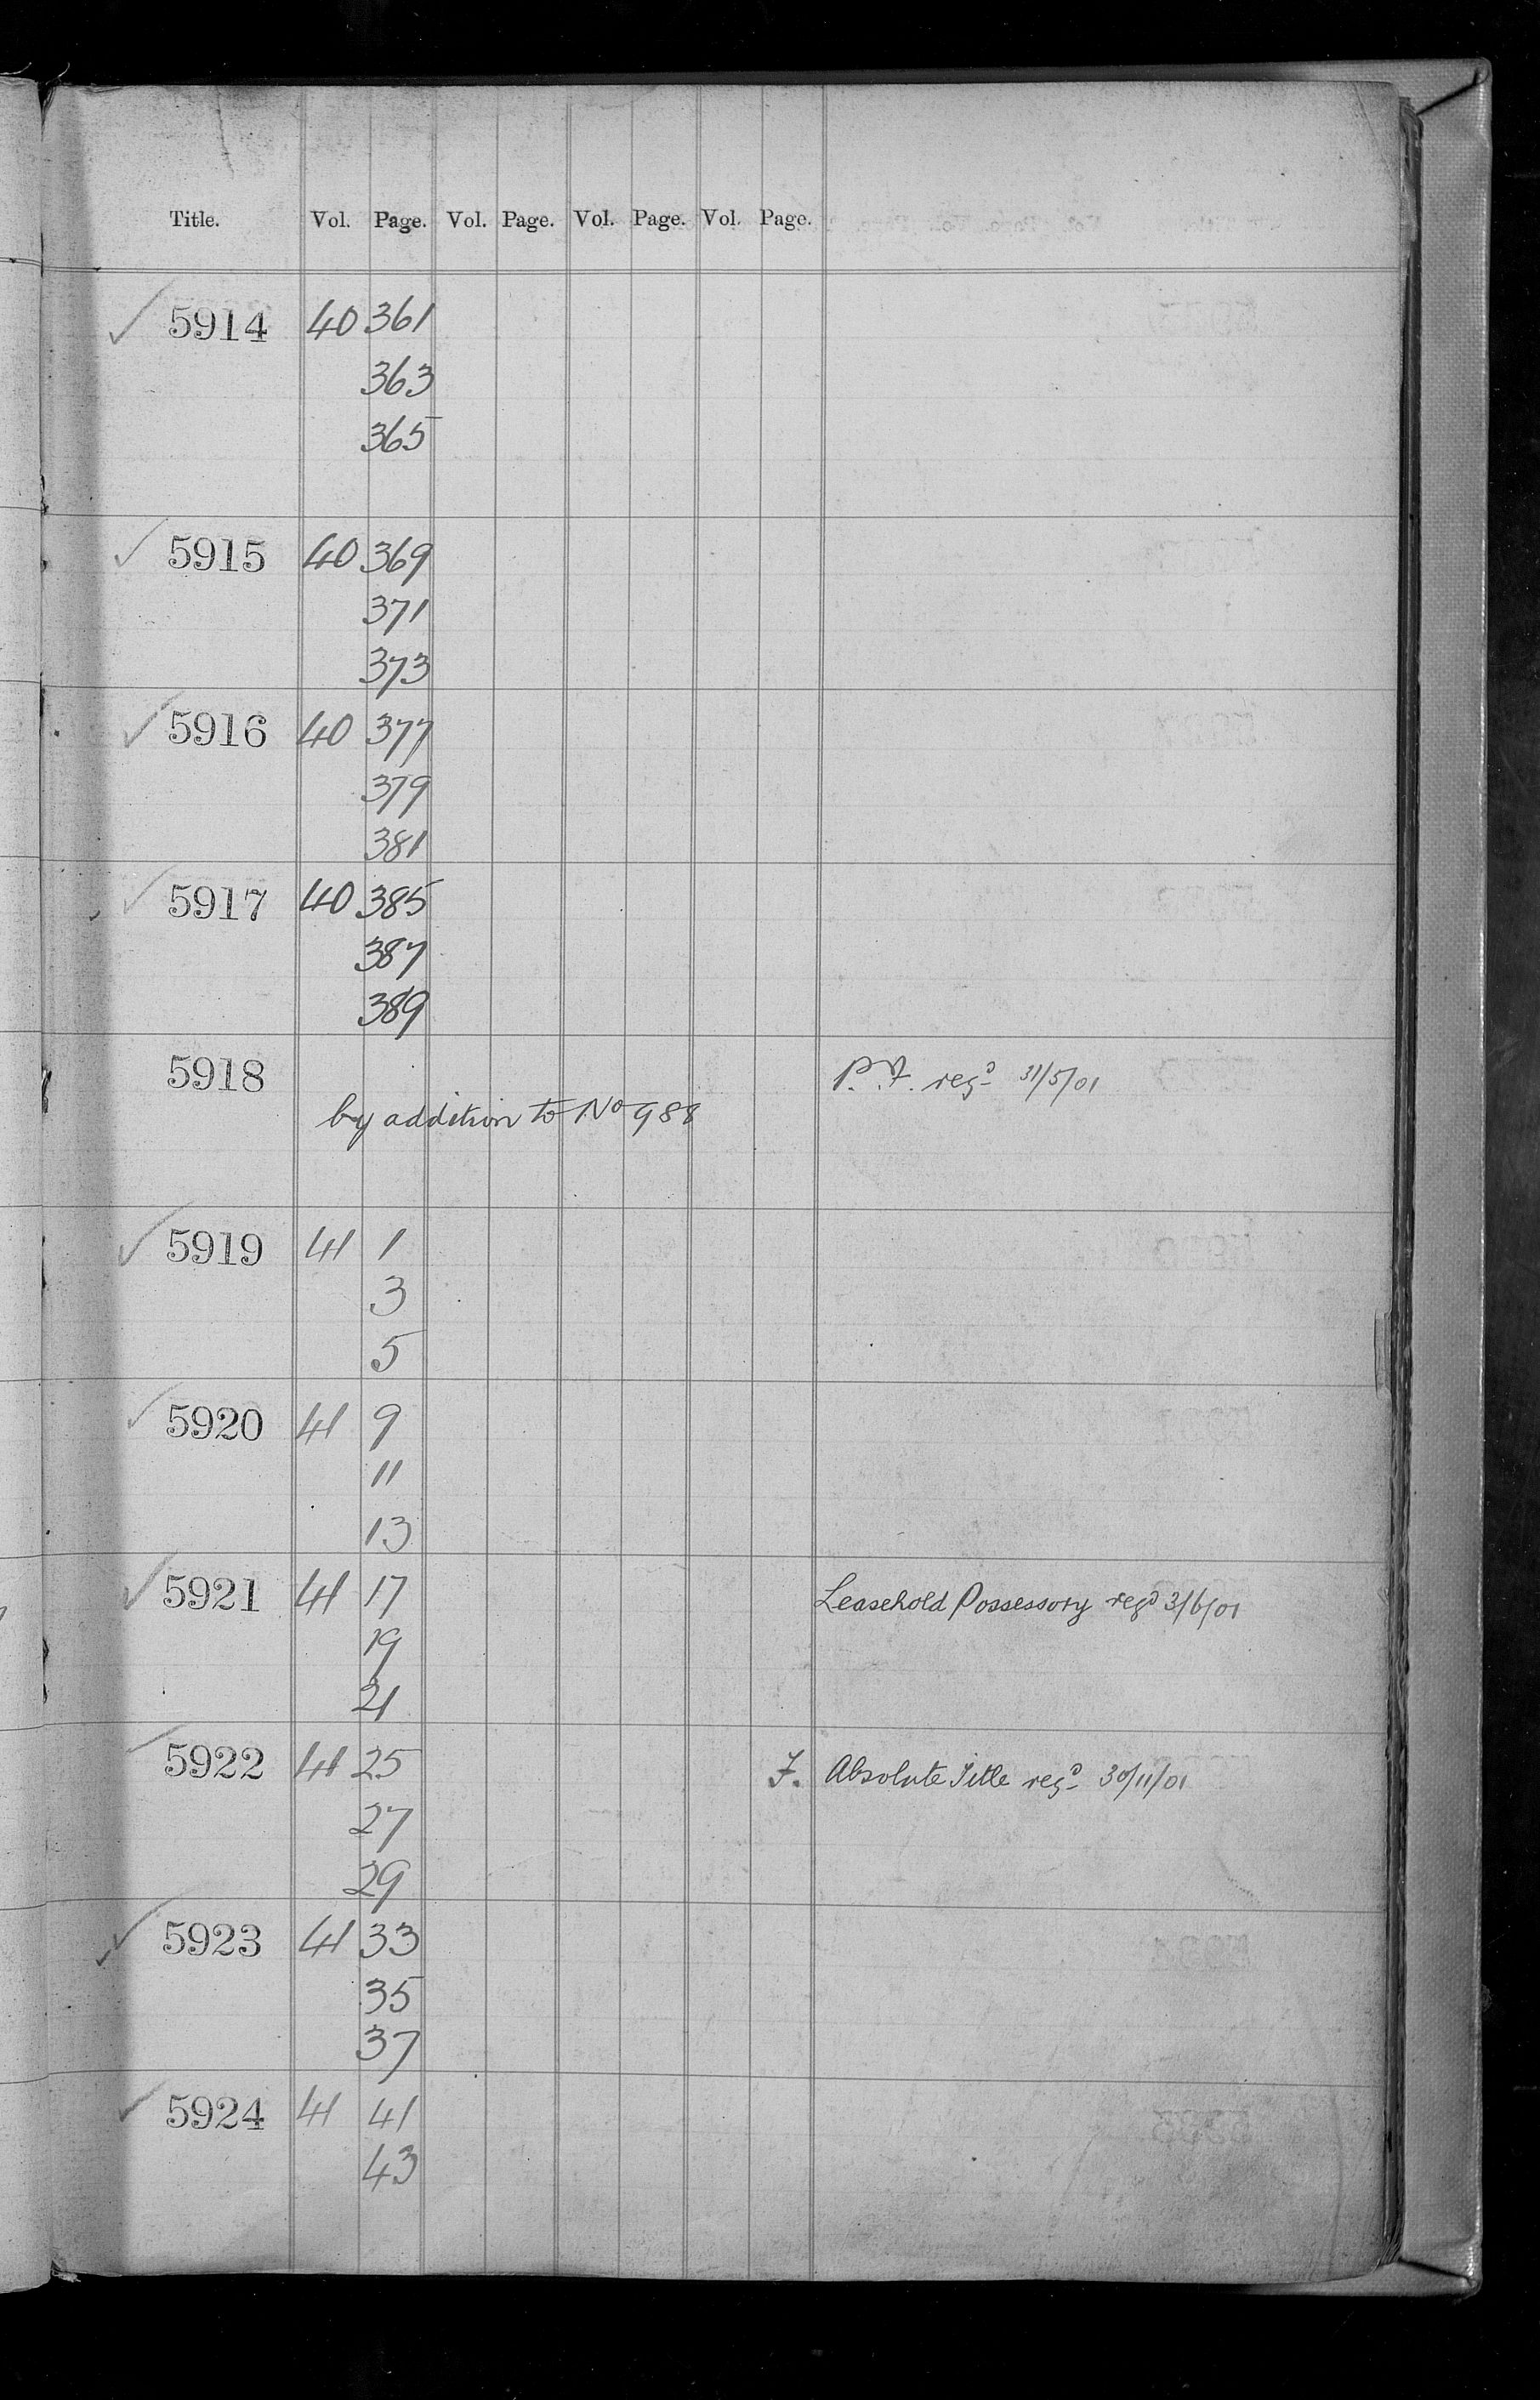 Title. Vol. Page. Vol. Page. Vol. Page. Vol. Page.
✓ 5914 40 361
363
365
✓ 5915 40 369
371
373
✓ 5916 40 377
379
381
✓ 5917 40 385
387
389
5918 P.F. regd 31/5/01
by addition to No 988
✓ 5919 41 1
3
5
✓ 5920 41 9
11
13
✓ 5921 41 17 Leasehold Possessory regd 3/6/01
19
21
✓ 5922 41 25 F. Absolute Title regd 30/11/01
27
29
✓ 5923 41 33
35
37
✓ 5924 41 41
43